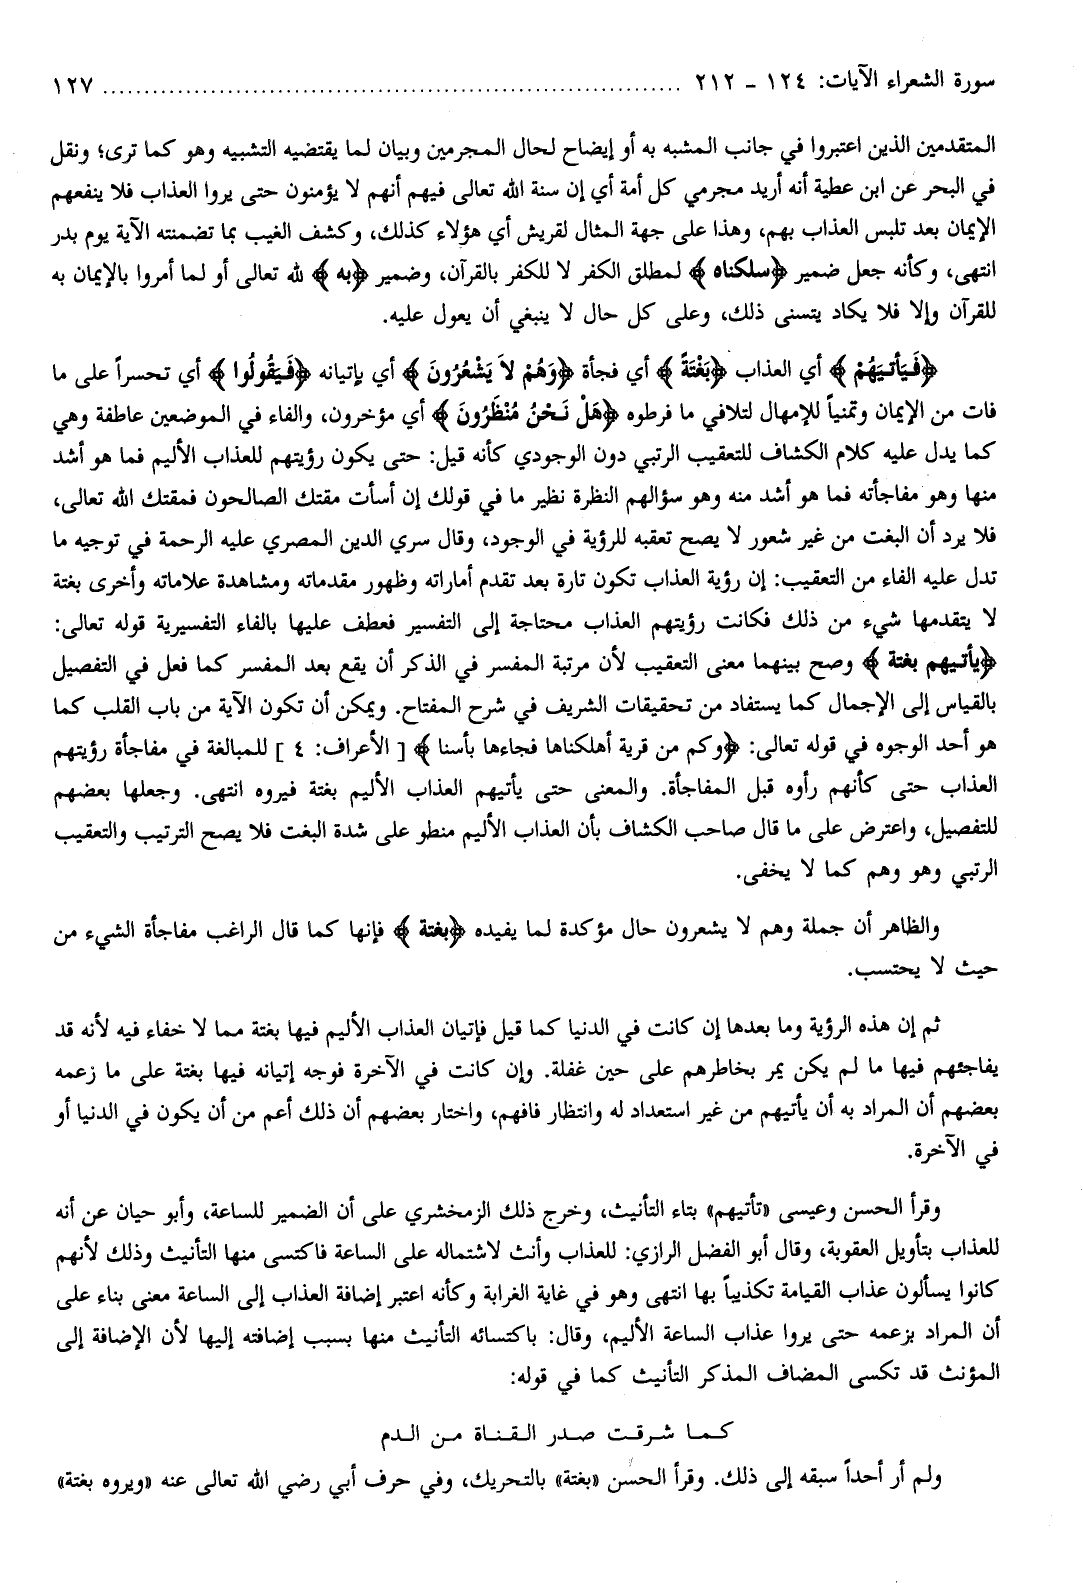 سورة الشعراء الآيات: ١٢٤ - ٢١٢ ........................................................................ ١٢٧
المتقدمين الذين اعتبروا في جانب المشبه به أو إيضاح لحال المجرمين وبيان لما يقتضيه التشبيه وهو كما ترى؛ ونقل
في البحر عن ابن عطية أنه أريد مجرمي كل أمة أي إن سنة الله تعالى فيهم أنهم لا يؤمنون حتى يروا العذاب فلا ينفعهم
الإيمان بعد تلبس العذاب بهم، وهذا على جهة المثال لقريش أي هؤلاء كذلك، وكشف الغيب بما تضمنته الآية يوم بدر
انتهى، وكأنه جعل ضمير ﴿سلكناه﴾ لمطلق الكفر لا للكفر بالقرآن، وضمير ﴿به﴾ لله تعالى أو لما أمروا بالإيمان به
للقرآن وإلا فلا يكاد يتسنى ذلك، وعلى كل حال لا ينبغي أن يعول عليه.
﴿فَيأتيَهُمْ﴾ أي العذاب ﴿بَغْتَةً﴾ أي فجأة ﴿وَهُمْ لاَ يَشْعُرُونَ﴾ أي بإتيانه ﴿فَيَقُولُوا﴾ أي تحسراً على ما
فات من الإيمان وتمنياً للإمهال لتلافي ما فرطوه ﴿هَلْ نَحْنُ مُنْظَرُونَ﴾ أي مؤخرون، والفاء في الموضعين عاطفة وهي
كما يدل عليه كلام الكشاف للتعقيب الرتبي دون الوجودي كأنه قيل: حتى يكون رؤيتهم للعذاب الأليم فما هو أشد
منها وهو مفاجأته فما هو أشد منه وهو سؤالهم النظرة نظير ما في قولك إن أسأت مقتك الصالحون فمقتك الله تعالى،
فلا يرد أن البغت من غير شعور لا يصح تعقبه للرؤية في الوجود، وقال سري الدين المصري عليه الرحمة في توجيه ما
تدل عليه الفاء من التعقيب: إن رؤية العذاب تكون تارة بعد تقدم أماراته وظهور مقدماته ومشاهدة علاماته وأخرى بغتة
لا يتقدمها شيء من ذلك فكانت رؤيتهم العذاب محتاجة إلى التفسير فعطف عليها بالفاء التفسيرية قوله تعالى:
﴿يأتيهم بغتة﴾ وصح بينهما معنى التعقيب لأن مرتبة المفسر في الذكر أن يقع بعد المفسر كما فعل في التفصيل
بالقياس إلى الإجمال كما يستفاد من تحقيقات الشريف في شرح المفتاح. ويمكن أن تكون الآية من باب القلب كما
هو أحد الوجوه في قوله تعالى: ﴿وكم من قرية أهلكناها فجاءها بأسنا﴾ [ الأعراف: ٤ ] للمبالغة في مفاجأة رؤيتهم
العذاب حتى كأنهم رأوه قبل المفاجأة. والمعنى حتى يأتيهم العذاب الأليم بغتة فيروه انتهى. وجعلها بعضهم
للتفصيل، واعترض على ما قال صاحب الكشاف بأن العذاب الأليم منطو على شدة البغت فلا يصح الترتيب والتعقيب
الرتبي وهو وهم كما لا يخفى.
والظاهر أن جملة وهم لا يشعرون حال مؤكدة لما يفيده ﴿بغتة﴾ فإنها كما قال الراغب مفاجأة الشيء من
حيث لا يحتسب.
ثم إن هذه الرؤية وما بعدها إن كانت في الدنيا كما قيل فإتيان العذاب الأليم فيها بغتة مما لا خفاء فيه لأنه قد
يفاجئهم فيها ما لم يكن يمر بخاطرهم على حين غفلة. وإن كانت في الآخرة فوجه إتيانه فيها بغتة على ما زعمه
بعضهم أن المراد به أن يأتيهم من غير استعداد له وانتظار فافهم، واختار بعضهم أن ذلك أعم من أن يكون في الدنيا أو
في الآخرة.
وقرأ الحسن وعيسى «تأتيهم» بتاء التأنيث، وخرج ذلك الزمخشري على أن الضمير للساعة، وأبو حيان عن أنه
للعذاب بتأويل العقوبة، وقال أبو الفضل الرازي: للعذاب وأنث لاشتماله على الساعة فاكتسى منها التأنيث وذلك لأنهم
كانوا يسألون عذاب القيامة تكذيباً بها انتهى وهو في غاية الغرابة وكأنه اعتبر إضافة العذاب إلى الساعة معنى بناء على
أن المراد بزعمه حتى يروا عذاب الساعة الأليم، وقال: باكتسائه التأنيث منها بسبب إضافته إليها لأن الإضافة إلى
المؤنث قد تكسى المضاف المذكر التأنيث كما في قوله:
كما شرقت صدر القناة من الدم
ولم أر أحداً سبقه إلى ذلك. وقرأ الحسن «بغتة» بالتحريك، وفي حرف أبي رضي الله تعالى عنه «ويروه بغتة»